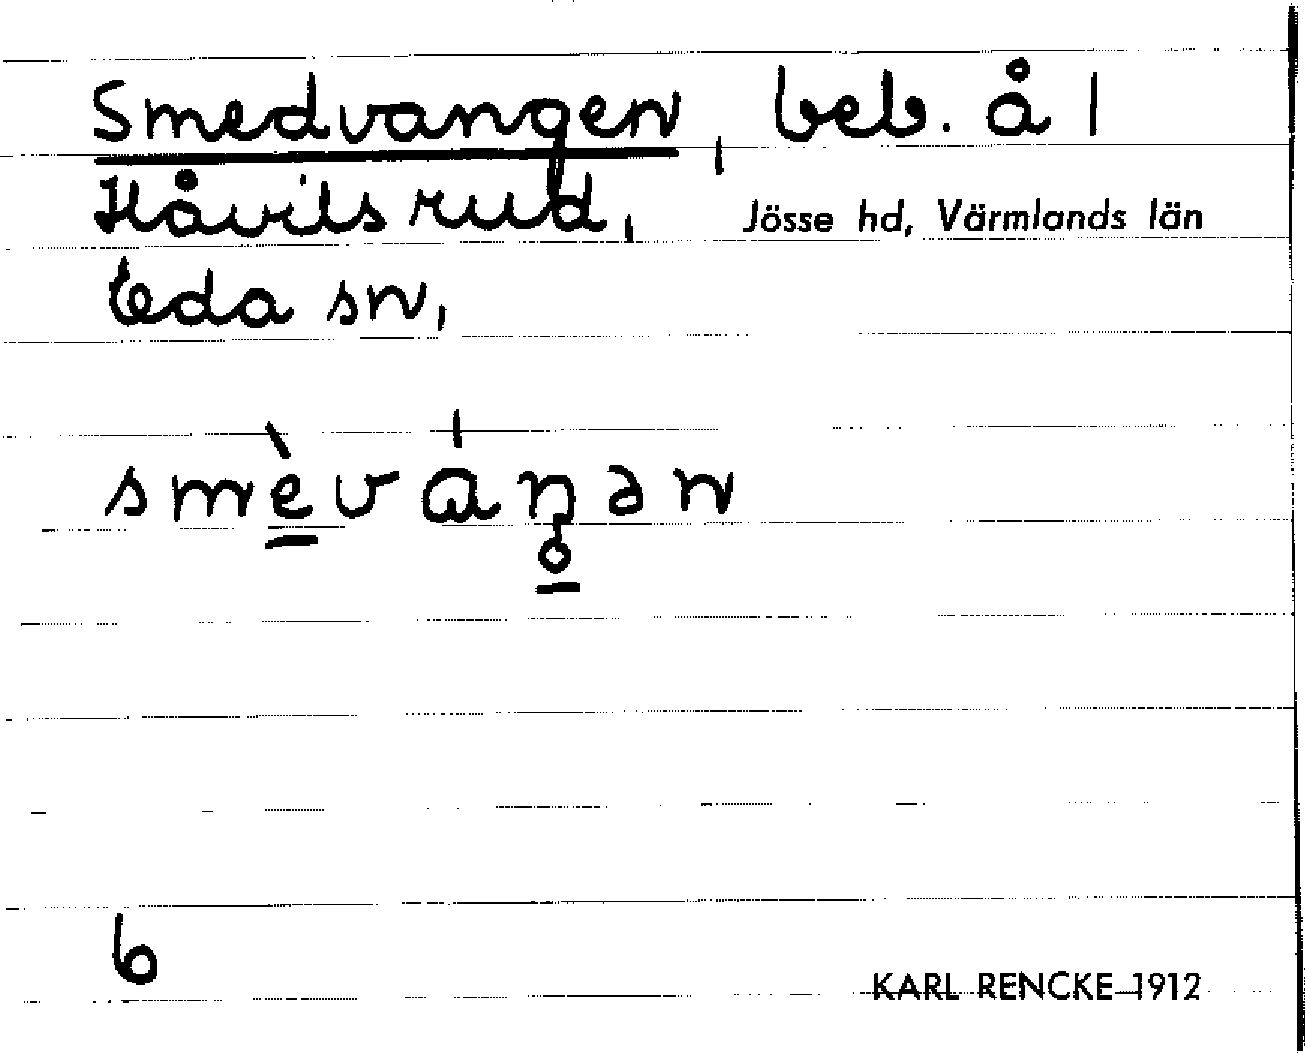 Smedvangen, beb. å 1
Håvilsrud, Jösse hd, Värmlands län
Eda sn,
smèváŋən
6
KARL RENCKE 1912